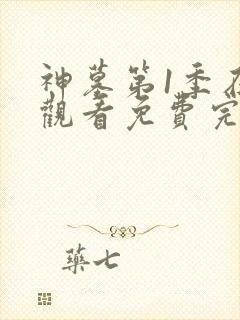 神墓第1季
觀看免費完
藥七